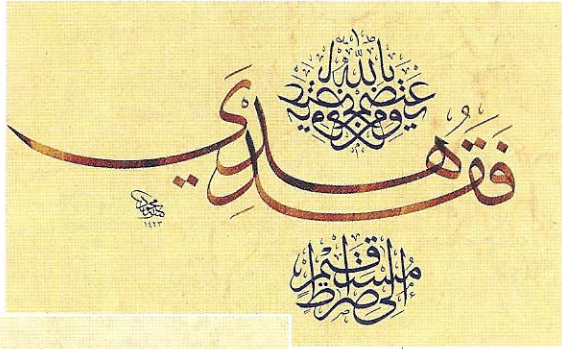 ومن يعتصم بالله
فَقَدْ هُدِيَ
إلى صراط مستقيم
١٤٢٣